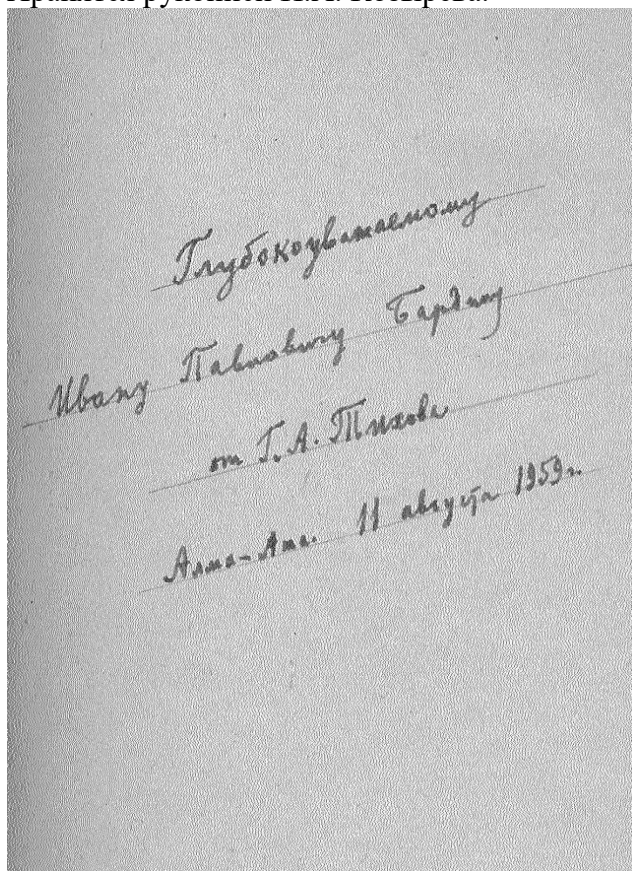 Глубокоуважаемому
Ивану Павловичу Бардину
от Г. А. Тихова
Алма-Ата. 11 августа 1959г.